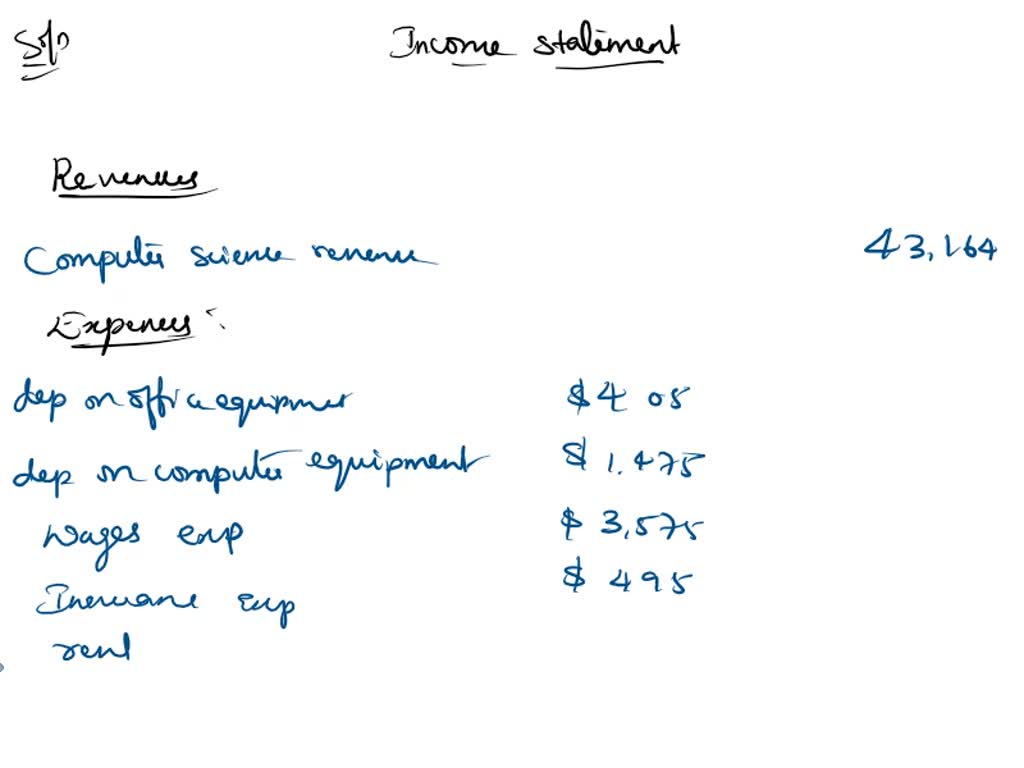 Soln
Income statement
Revenues
Computer science revenue 43,164
Expenses :
dep on office equipment $405
dep on computer equipment $1,475
Wages exp $3,575
Insurance exp $495
rent